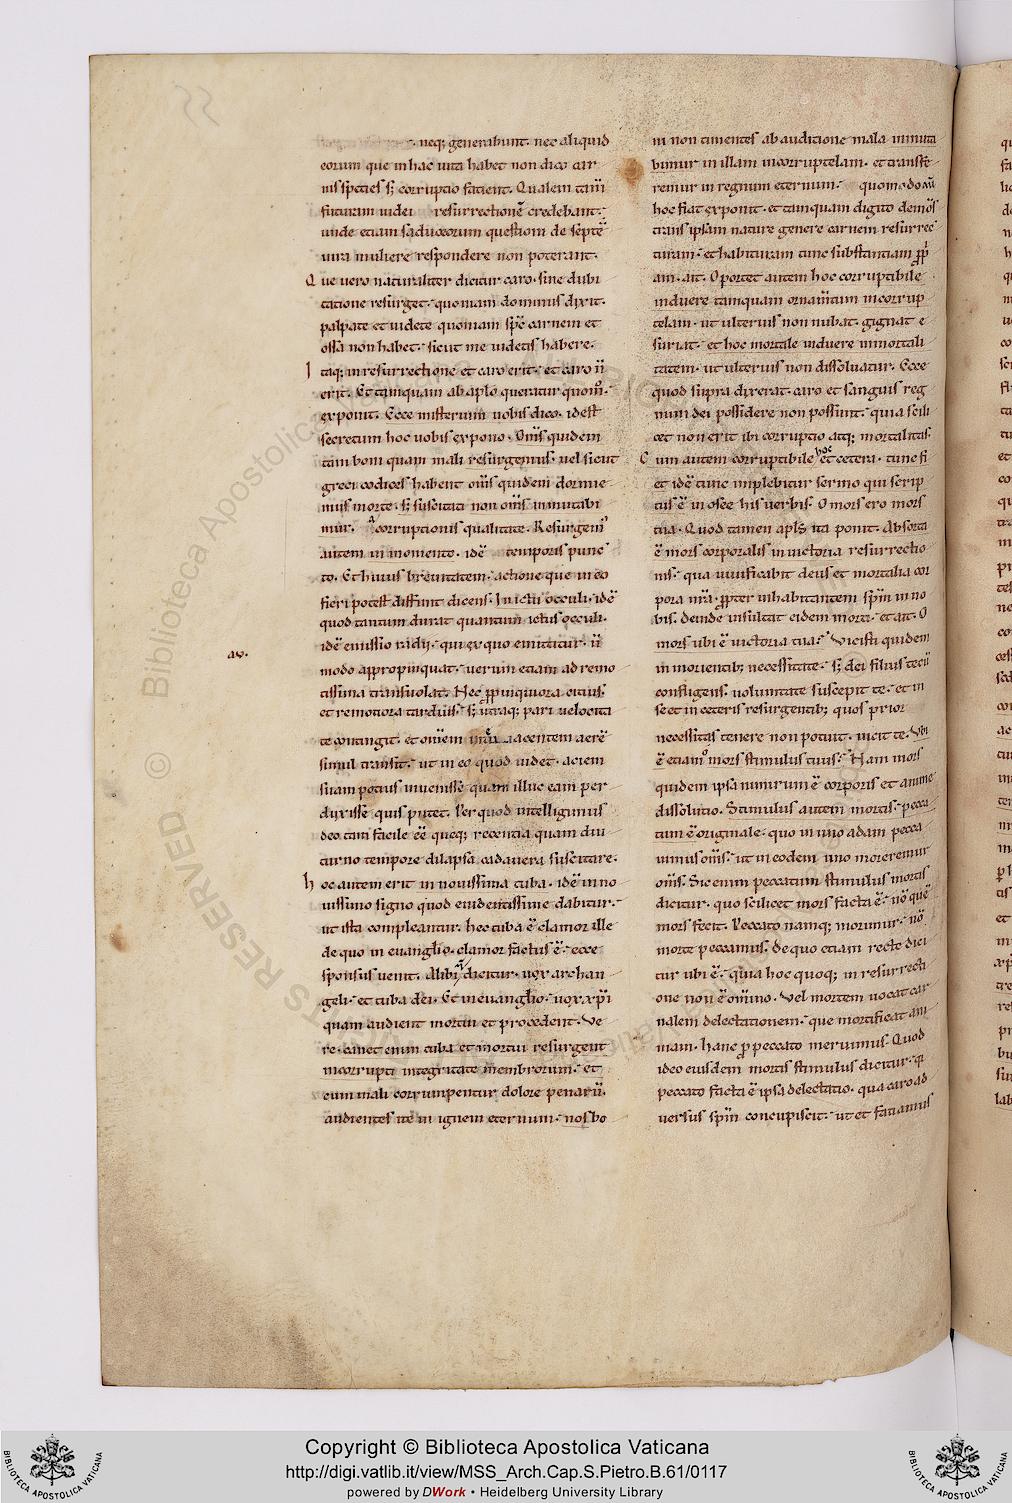 neq; generabunt. nec aliquid
eorum que in hac uita habet non dico car
nis species s; corruptio facient. Qualem tam̄
futuram iudei resurrectionē credebant.
unde etiam saduceorum questioni de septē
uira muliere respondere non poterant.
Que uero naturaliter dicitur caro. sine dubi
tatione resurget. quoniam dominus dixit.
palpate et uidete quoniam sp̄c carnem et
ossa non habet. sicut me uidetis habere.
Itaq; in resurrectione et caro erit. et caro n̄
erit. Et tamquam ab aplo queratur quom̊.
exponit. Ecce misterium uobis dico. idest
secretum hoc uobis expono. Om̄s quidem
tam boni quam mali resurgemus. uel sicut
greci codices habent om̄s quidem dormie
mus morte. s; suscitati non om̄s inmutabi
mur. a corruptionis qualitate. Resurgem᾽
autem in momento. idē temporis punc
to. Et huius breuitatem. actione que in eo
fieri potest diffinit dicens. In ictu occuli. idē
quod tantum durat quantum ictus occuli.
idē emissio radij. qui ex quo emittitur. n̄
modo appropinquat. uerum etiam ad remo
tissima transuolat. Nec ꝓpinquiora citius.
et remotiora tardius. s; utraq; pari uelocita
te contingit. et omēm iacentem aerē
simul transit. ut in eo quod uidet. aciem
suam potius inuenisse quam illuc eam per
duxisse quis putet. Per quod intelligimus
deo tam facile ēē queq; recentia quam diu
turno tempore dilapsa cadauera suscitare.
hoc autem erit in nouissima tuba. idē in no
uissimo signo quod euidentissime dabitur.
ut ista compleantur. hec tuba ē clamor ille
de quo in euanglio. clamor factus ē. ecce
sponsus uenit. Alibi dicitur. uox archan
geli. et tuba dei. Et in euanglio. uox xp̄i
quam audient mortui et procedent. Ve
re. canet enim tuba et mortui resurgent
incorrupti integritate membrorum. et
cum mali corrumpentur dolore penarū.
audientes ite in ignem eternum. nos bo
ni non timentes ab auditione mala inmuta
bimur in illam incorruptelam. et transfe
remur in regnum eternum. quomodo aū
hoc fiat exponit. et tamquam digito demōs
trans ipsam nature genere carnem resurrec
turam. et habituram tunc substantiam ꝓp̄
am. ait. Oportet autem hoc corruptibile
induere tamquam ornam̄tum incorrup
telam. ut ulterius non nubat. gignat e
suriat. et hoc mortale induere inmortali
tatem. ut ulterius non dissoluatur. Ecce
quod supra dixerat. caro et sanguis reg
num dei possidere non possunt. quia scili
cet non erit ibi corruptio atq; mortalitas.
Cum autem corruptibile hoc et cetera. tunc fi
et idē tunc implebitur sermo qui scrip
tus ē in osee his uerbis. O mors ero mors
tua. Quod tamen apls ita ponit. Absorta
ē mors corporalis in uictoria resurrectio
nis. qua uiuificabit deus et mortalia cor
pora nr̄a. ꝓpter inhabitantem sp̄m in no
bis. deinde insultat eidem morti. et ait. O
mors ubi ē uictoria tua? Vicisti quidem
in morientib; necessitate. s; dei filius tecū
confligens. uoluntate suscepit te. et in
se et in ceteris resurgentib; quos prior
necessitas tenere non potuit. uicit te. Vbi
ē etiam o mors stimulus tuus? Nam mors
quidem ipsa nimirum ē corporis et anime
dissolutio. Stimulus autem mortis. pecca
tum ē originale. quo in uno adam pecca
uimus om̄s. ut in eodem uno moreremur
om̄s. Sic enim peccatum stimulus mortis
dicitur. quo scilicet mors facta ē. nō quē
mors fecit. Peccato namq; morimur. nō
morte peccamus. de quo etiam recte dici
tur ubi ē. quia hoc quoq; in resurrecti
one non ē omīno. Vel mortem uocat car
nalem delectationem. que mortificat ani
mam. hanc ꝓ peccato meruimus. Quod
ideo eiusdem mortis stimulus dicitur. q̄
peccato facta ē ipsa delectatio. qua caro ad
uersus sp̄m concupiscit. ut et faciamus
Copyright © Biblioteca Apostolica Vaticana
http://digi.vatlib.it/view/MSS_Arch.Cap.S.Pietro.B.61/0117
powered by DWork • Heidelberg University Library